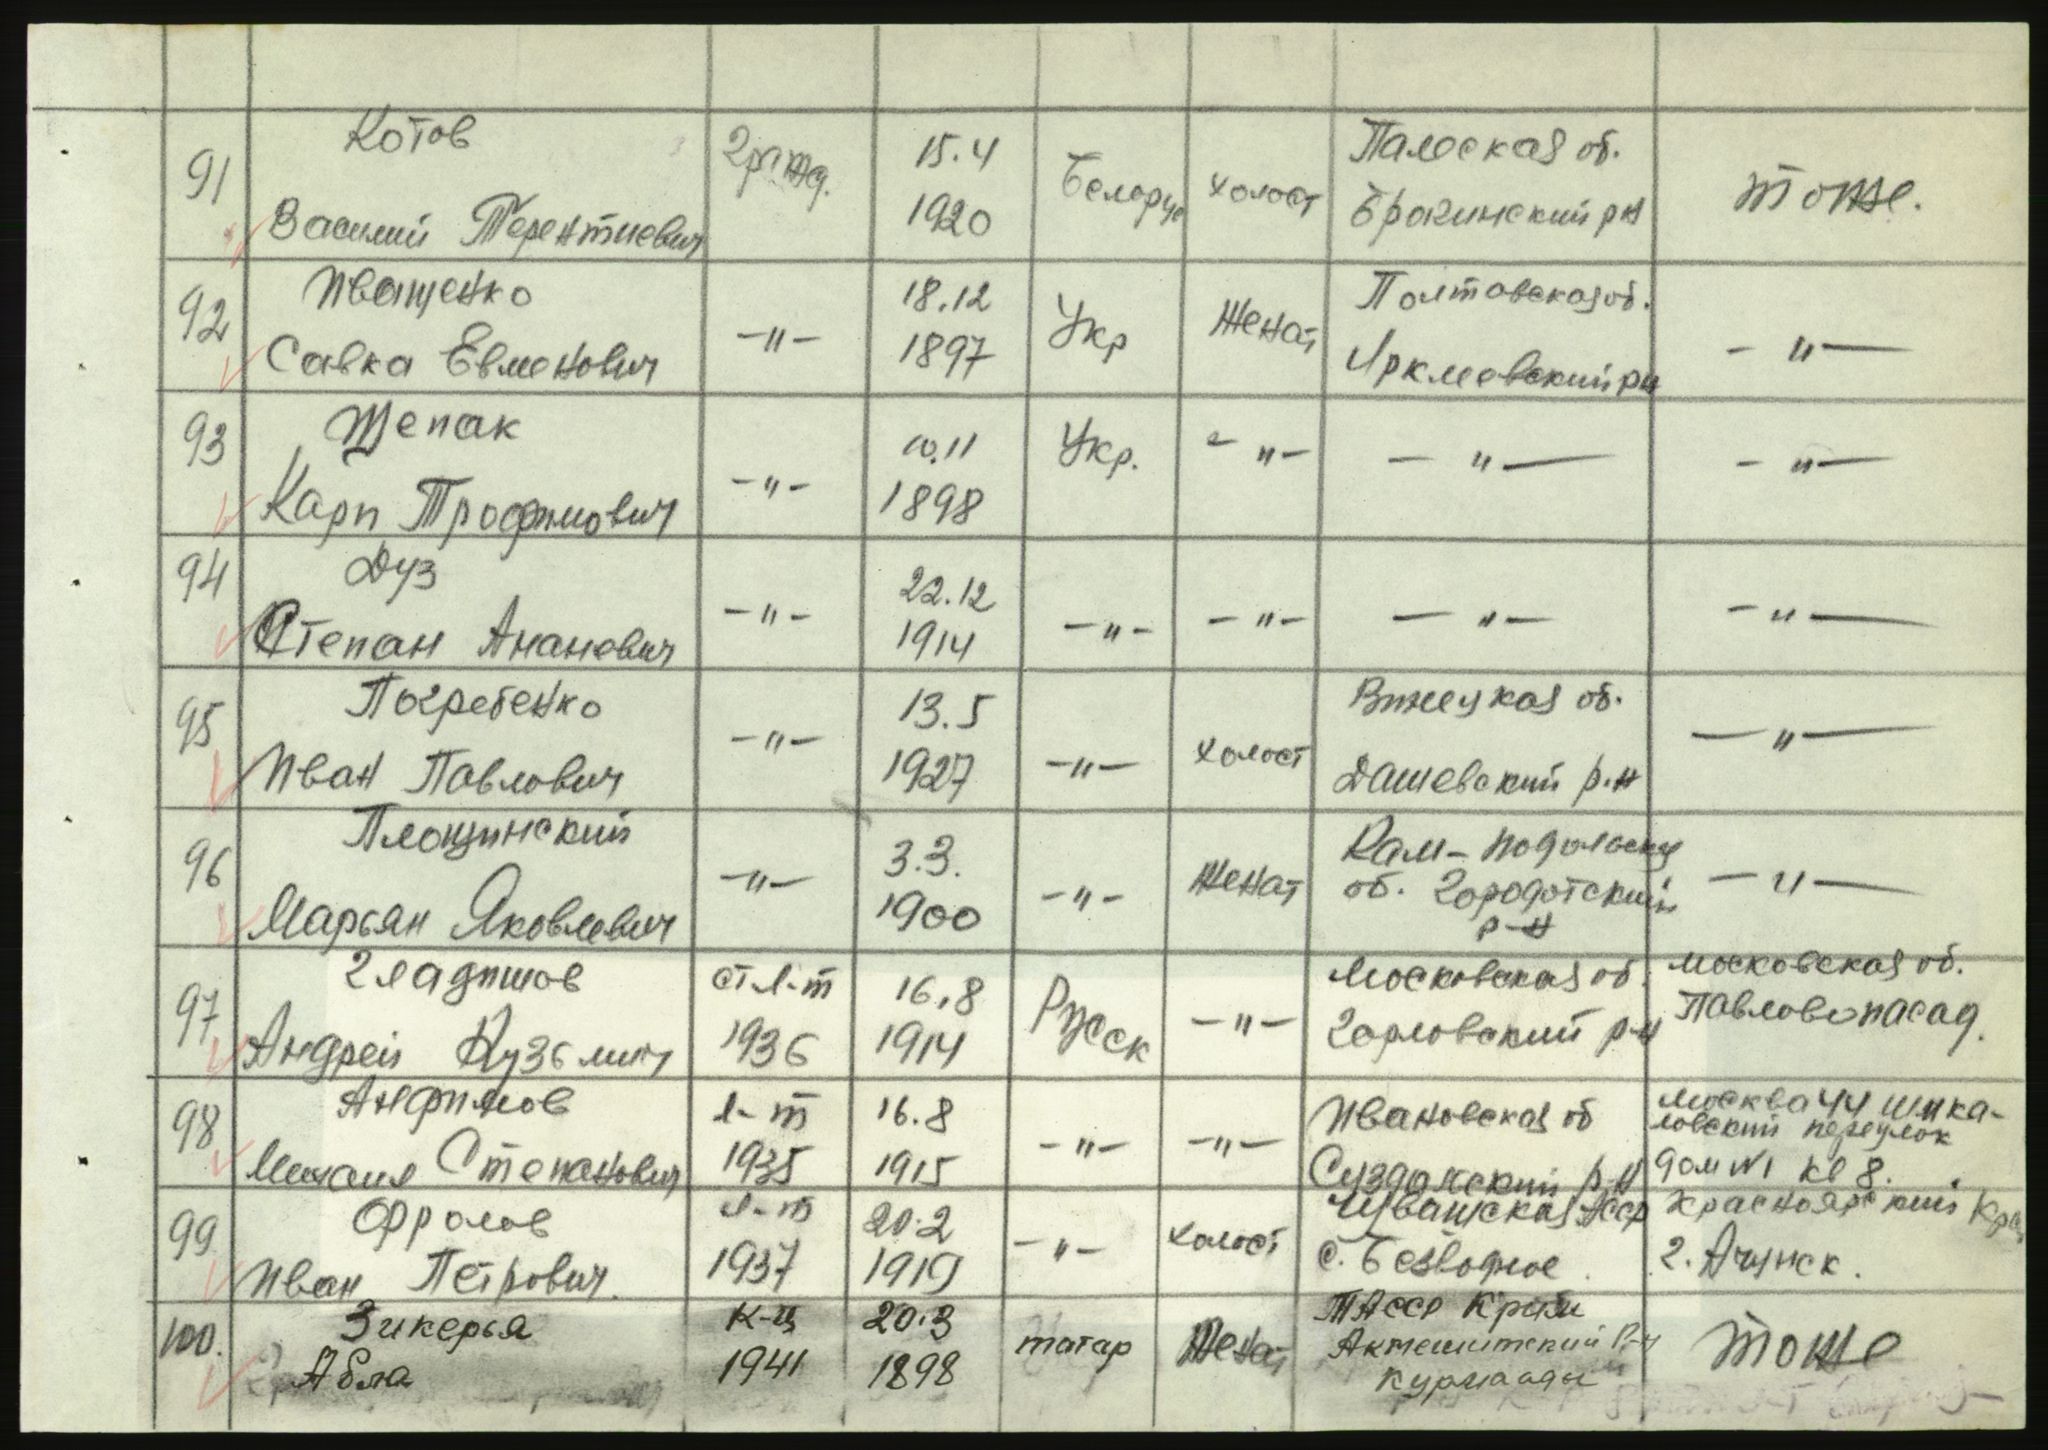 91 Котов гражд. 15.4 Белорус холост Палеская об. тоже.
Василий Терентиевич 1920 Брагинский р-н
92 Иващенко -"- 18.12 Укр Женат Полтавская об. -"-
Савка Евменович 1897 Ирклеевский р-н
93 Щепак -"- 10.11 Укр. -"- -"- -"-
Карп Трофимович 1898
94 Дуз -"- 22.12 -"- -"- -"- -"-
Степан Ананович 1914
95 Погребенко -"- 13.5 -"- холост Винецкая об. -"-
Иван Павлович 1927 Дашевский р.н
96 Площинский -"- 3.3. -"- Женат Кам-Подольская -"-
Марьян Яковлевич 1900 об. Городотский
р-н
97 Гладишов ст л-т 16.8 Русск -"- Московская об. Московская об.
Андрей Кузьмич 1936 1914 Горловский р-н Павловопасад.
98 Анфимов л-т 16.8 -"- -"- Ивановская об Москва 44 Шмка-
ловский переулок
Михаил Степанович 1935 1915 Суздальский р.н дом №1 кв 8.
99 Фролов л-т 20.2 -"- холост Чувашская АССР Красноярский Край
Иван Петрович. 1937 1919 с. Безводное г. Ачинск.
100. Зикерья к-ц 20.3 татар Женат ТАССР Крим тоже
Абла 1941 1898 Акмешитский р-н